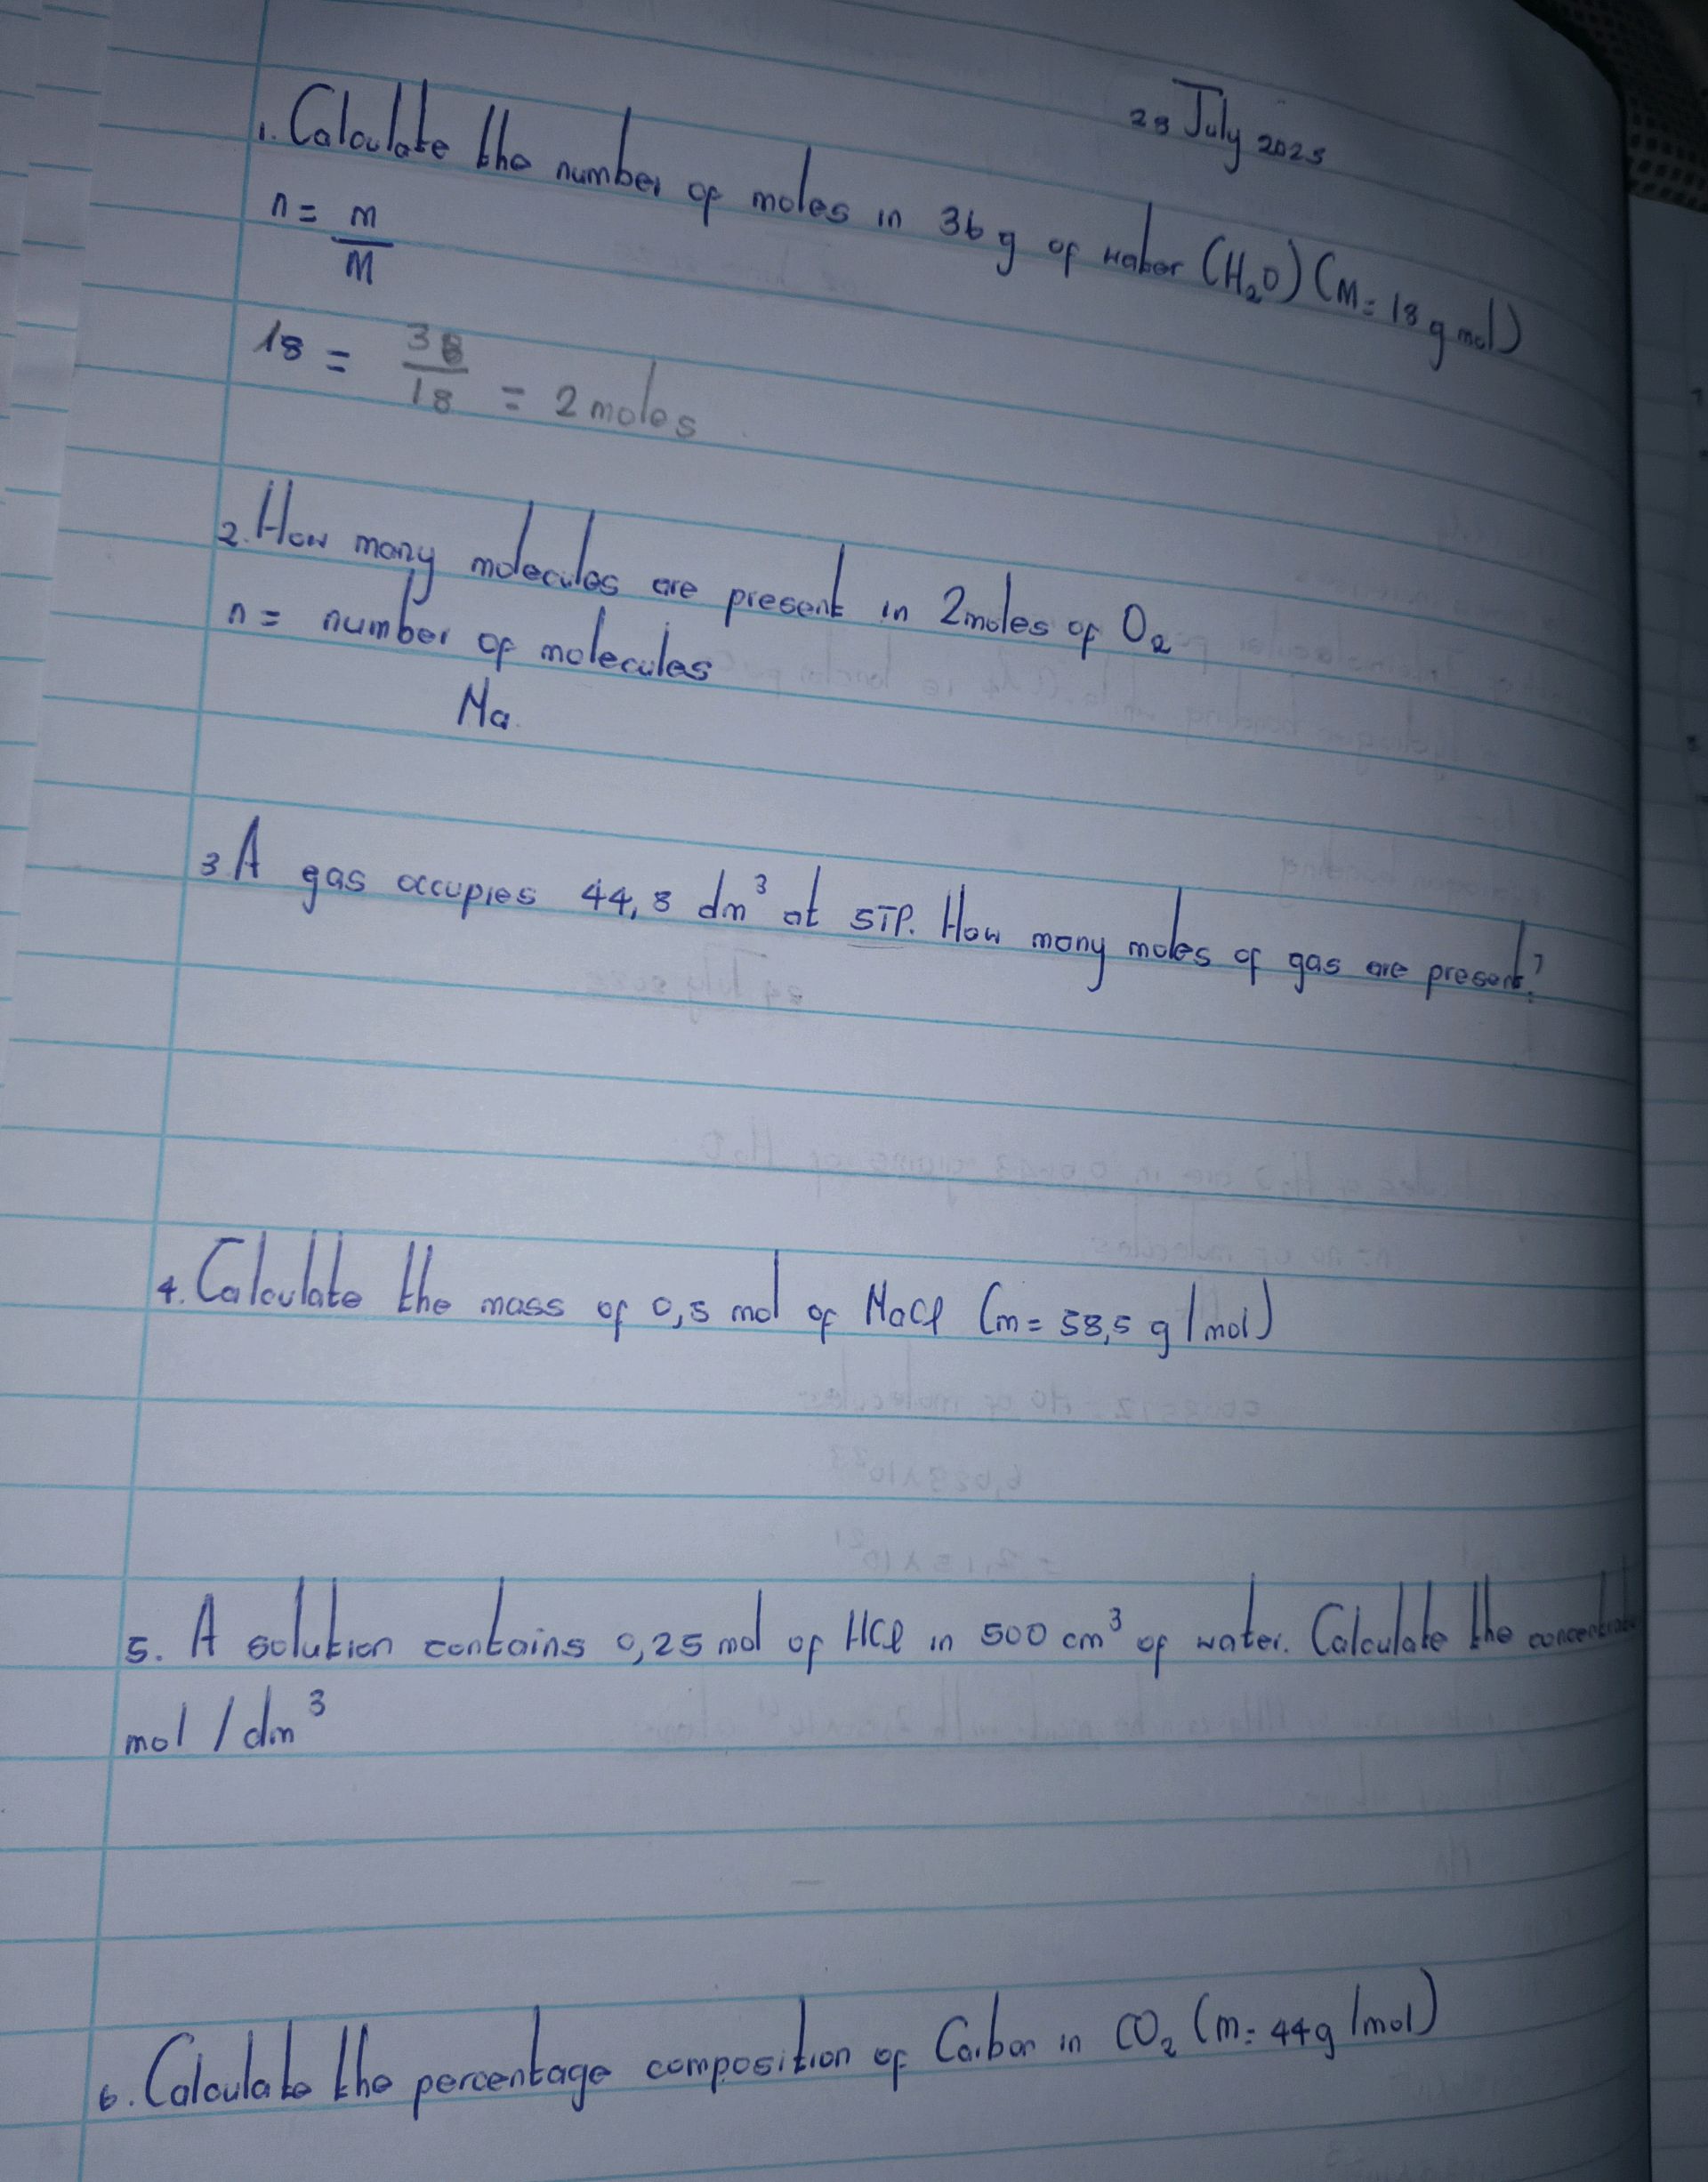 28 July 2025
1. Calculate the number of moles in 36 g of water (H₂O) (M = 18 g mol)
n = m
M
18 = 36
18 = 2 moles
2. How many molecules are present in 2 moles of O₂
n = number of molecules
Na.
3 A gas occupies 44,8 dm³ at STP. How many moles of gas are present?
4. Calculate the mass of 0,5 mol of NaCl (m = 58,5 g/mol)
5. A solution contains 0,25 mol of HCl in 500 cm³ of water. Calculate the
mol / dm³
6. Calculate the percentage composition of Carbon in CO₂ (m = 44g/mol)